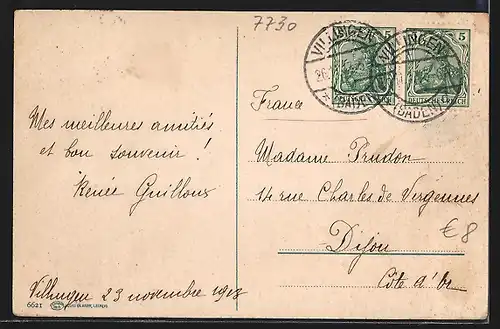 7730
VILLINGEN
(BADEN)
5
5
DEUTSCHES REICH
VILLINGEN
(BADEN)
France
Mes meilleures amitiés
et bon souvenir !
Renée Guilloux
Madame Prudon
14 rue Charles de Vergennes
Dijon
Côte d'Or
€8
Villingen 23 novembre 1913
6621